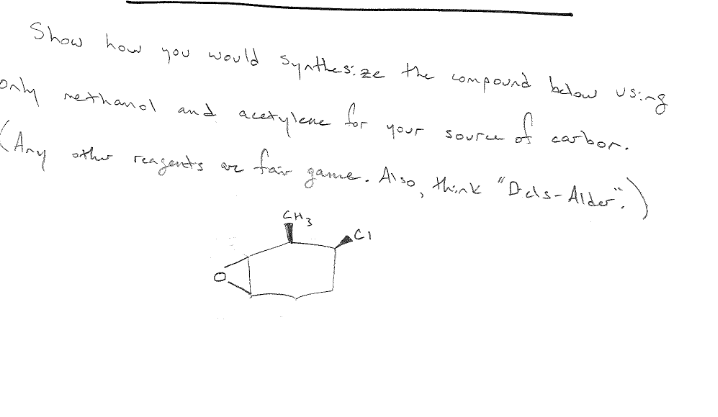 Show how you would synthesize the compound below using
only methanol and acetylene for your source of carbon.
(Any other reagents are fair game. Also, think "Diels-Alder".)
CH3
Cl
O